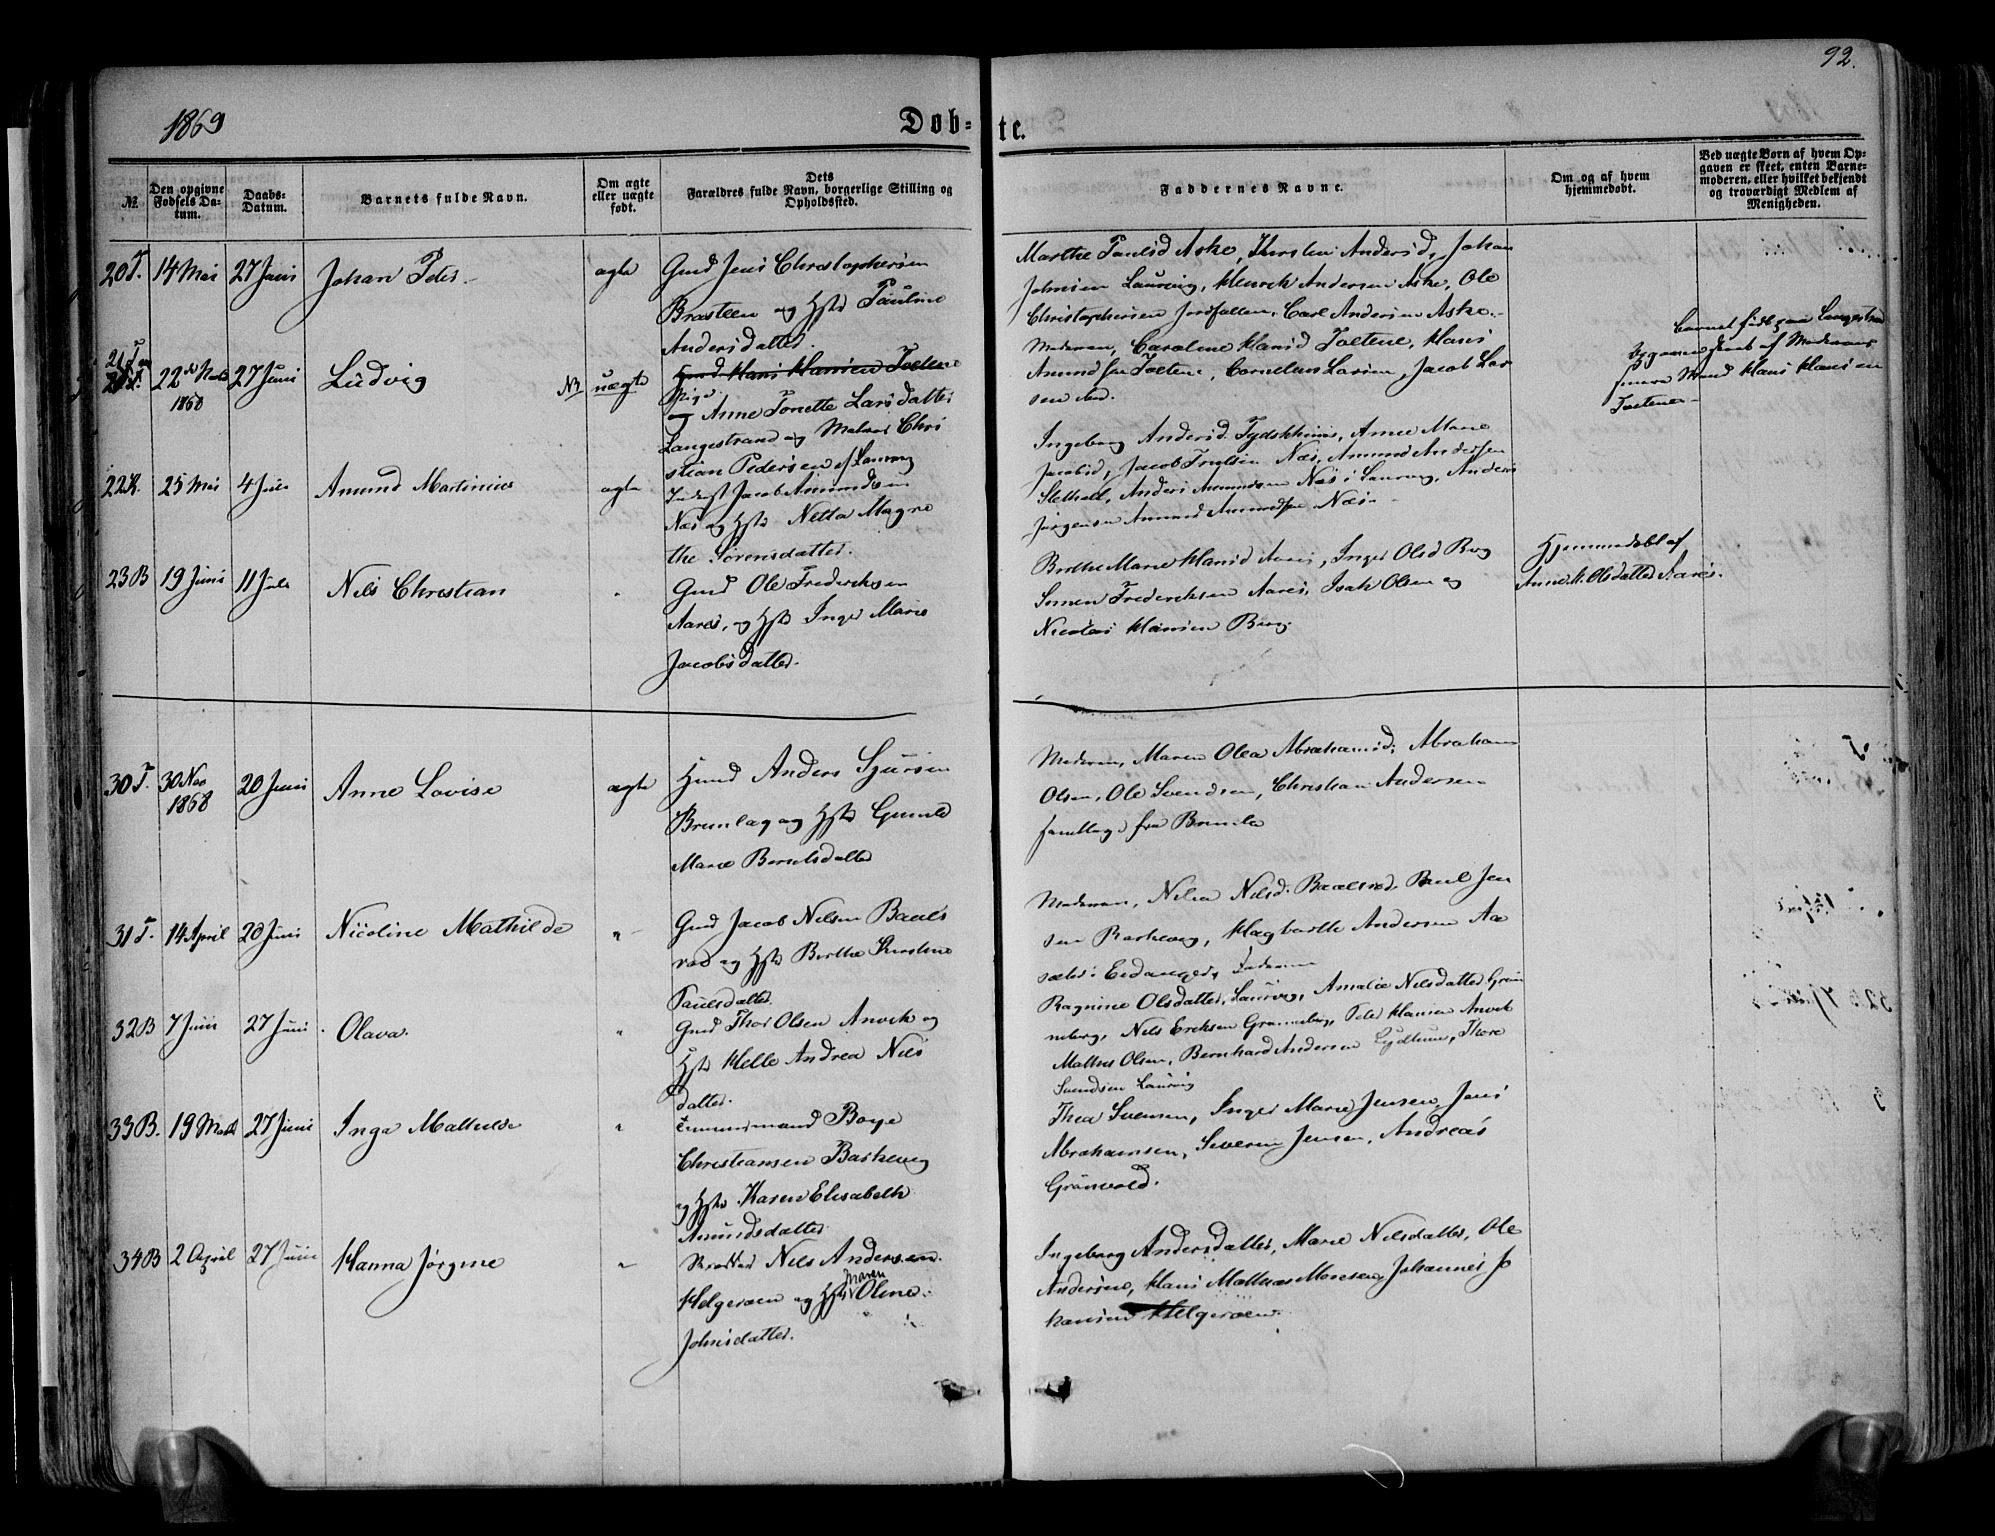 92.
1869
Døb=
te.
No.
Den opgivne Fødsels Da-tum.
Daabs-Datum.
Barnets fulde Navn.
Om ægte eller uægte født.
Dets Forældres fulde Navn, borgerlige Stilling og Opholdssted.
Faddernes Navne.
Om og af hvem hjemmedøbt.
Ved uægte Børn af hvem Op-gaven er skeet, enten Barne-moderen, eller hvilket bekjendt og troværdigt Medlem af Menigheden.
20 T. 14 Mai 27 Juni Johan Peter ægte
Gmd Jens Christophersen
og Hst Pauline
Andersdatter
Marthe Paulsd Aske, Andersd, Johan
Johnsen Laurvig, Henrik Andersen Aske, Ole
Christophersen Jordfallen, Carl Andersen Aske
22 1868 27 Juni Ludvig uægte
Gmd Hans Hansen Toetene
Pige
og Anne Tonette Larsdatter
Langestrand og Matros Chri
stian Pedersen af Laurvig
Moderen, Caroline Hansd Toetene, Hans
Amundsen Toetene, Cornelius Larsen, Jacob Lar
sen
Barnet født paa Langestrand
af Moderens
Mand Hans Hansen
Toetene
22 K. 25 Mai 4 Juli Amund Martinius ægte
Jacob Amundsen
Næs og Hst Netta Magre
the Sørensdatter.
Ingeborg Andersd. Anne Marie
Jacobsd, Jacob Næs, Amund Andersen
Anders Amundsen Næs i Laurvig, Anders
Jørgensen Amund Amundsen Næs
23 B 19 Juni 11 Juli Nils Christian "
Gmd Ole Frederiksen
Aarøs, og Hst Inger Marie
Jacobsdatter.
Birthe Marie Hansd Aarøs, Inger Olsd Berg
Simen Frederiksen Aarøs, Isak Olsen og
Nicolai Hansen Berg.
Hjemmedøbt af
Anne K. Olsdatter Aarøs.
30 T. 30 Nov 1868 20 Juni Anne Lovise ægte
Anders Sjursen
Brunlag og Hst Gunild
Marie Berntsdatter
Moderen, Maren Olea Abrahamsd, Abraham
Olsen, Ole Svendsen, Christian Andersen
samtlige fra Brunla
31 T. 14 April 20 Juni Nicoline Mathilde "
Gmd Jacob Nilsen Baals
rød og Hst Berthe Kirstine
Paulsdatter
Moderen, Nilia Nilsd. Baalsrød, Poul Jen
sen Barkevig, Hagbarth Andersen Aa
i Eidanger, Faderen
32 B 7 Juni 27 Juni. Olava. "
Gmd Thor Olsen Anvik og
Hst Helle Andrea Nils
datter.
Ragnine Olsdatter, Laurvig, Amalie Nilsdatter Gron
neberg, Nils Eriksen Gronneberg, Peder Hansen Anvik
Mathis Olsen, Bernhard Andersen Thore
Svendsen Laurvig
33 B. 19 Marts 27 Juni Inga Mathilde "
Tømmermand Boye
Christiansen Barkevig
og Hst Karen Elisabeth
Amundsdatter
Thea Svensen, Inger Marie Jensen, Jens
Abrahamsen, Severin Jensen, Andreas
Grönvold.
34 B 2 April 27 Juni Hanna Jørgine "
Skræder Nils Andersen
Helgeroen og Hst Maren Oline
Johnsdatter.
Ingeborg Andersdatter, Marie Nilsdatter, Ole
Andersen, Hans Mathias Monsen, Johannes Jo
hansen Helgeroen.